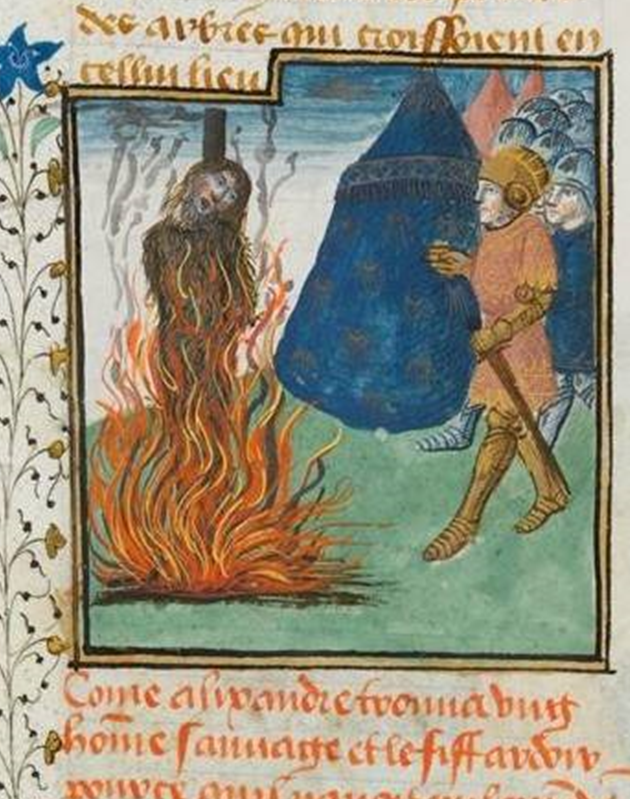 des arbres qui croissoient en
cellui lieu
Come alixandre trouua vng
hōme sauuage et le fist ardoir
pource quil